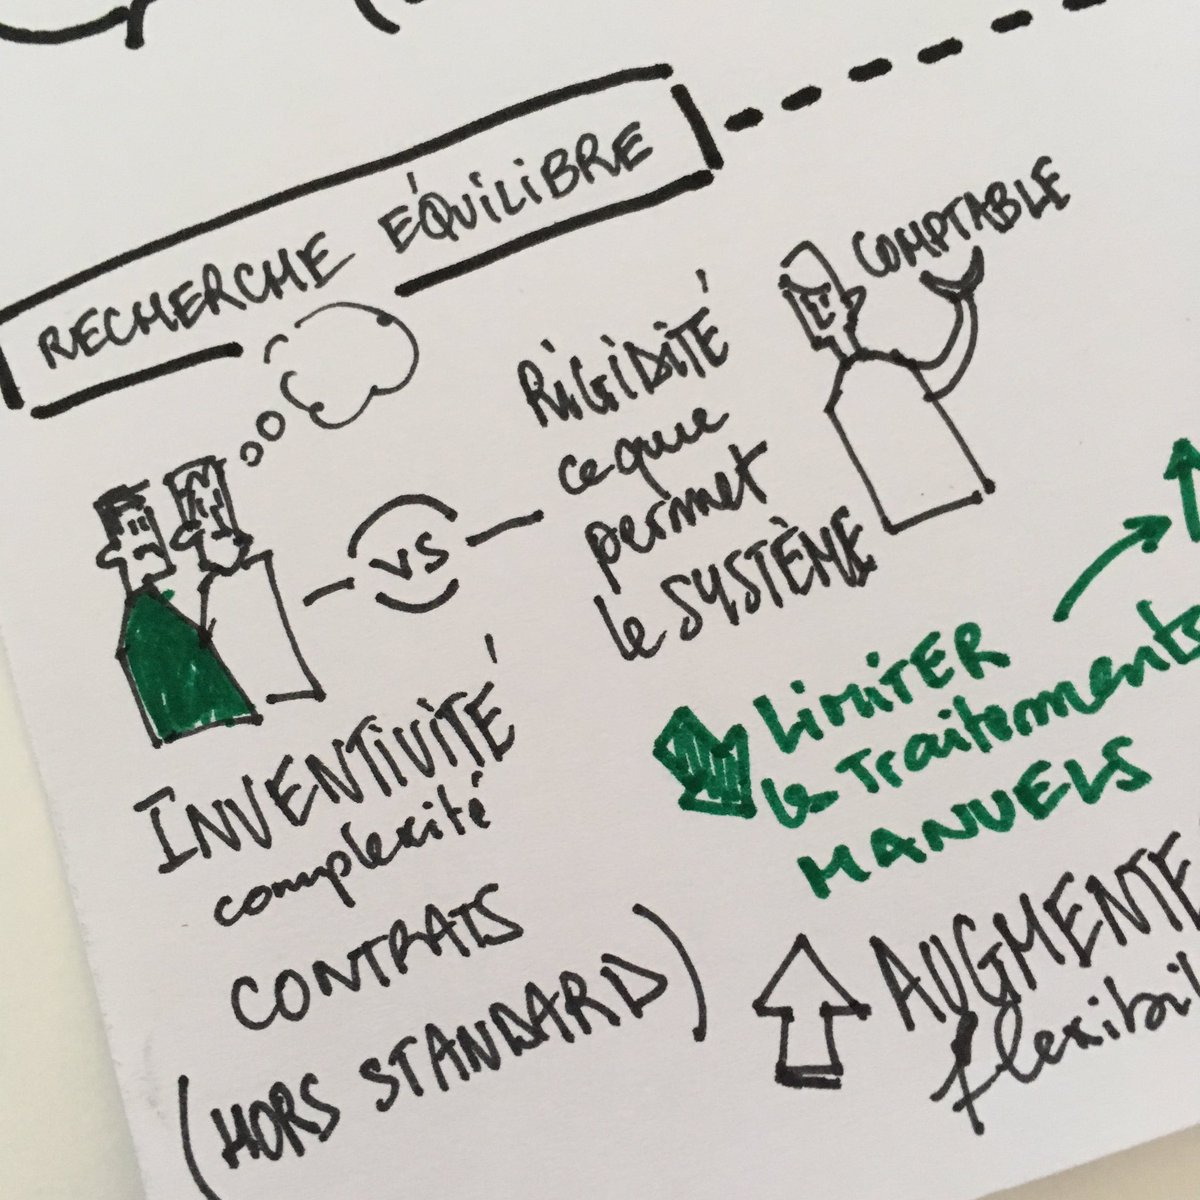 RECHERCHE ÉQUILIBRE
COMPTABLE
RIGIDITÉ
ce que
permet
le SYSTÈME
VS
INVENTIVITÉ
complexité
CONTRATS
(HORS STANDARD)
LIMITER
le traitements
MANUELS
AUGMENTE
flexibil